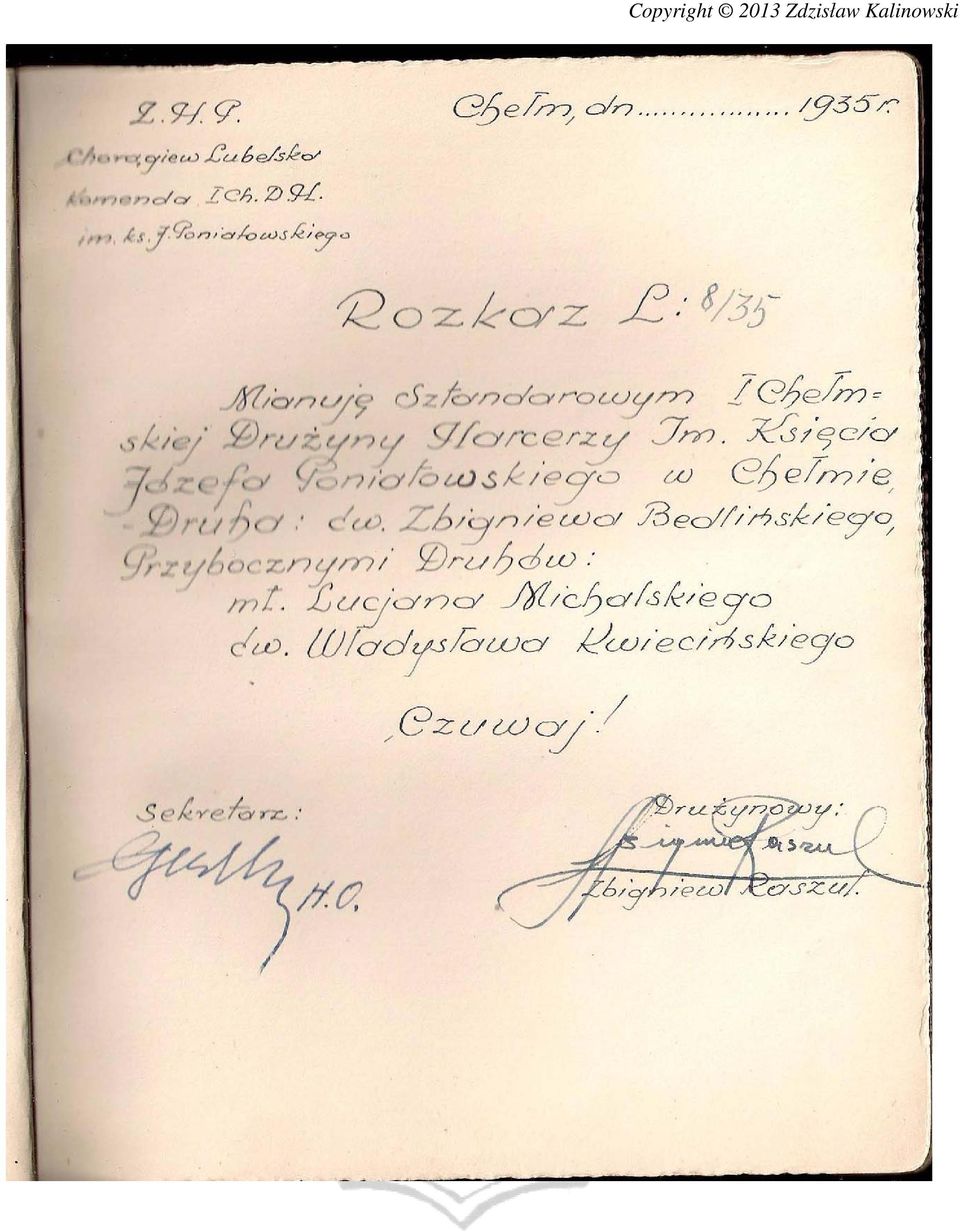 Copyright © 2013 Zdzisław Kalinowski
Z.H.P.
Chełm, dn.................. 1935 r.
Chorągiew Lubelska
Komenda I Ch. D.H.
im. ks. J. Poniatowskiego
Rozkaz L: 8/35
Mianuję Sztandarowym I Chełm=
skiej Drużyny Harcerzy Im. Księcia
Józefa Poniatowskiego w Chełmie,
- Druha: ćw. Zbigniewa Bedlińskiego,
Przybocznymi Druhów:
mł. Lucjana Michalskiego
ćw. Władysława Kwiecińskiego
Czuwaj!
Sekretarz:
Drużynowy:
H.O.
Zbigniew Raszul.